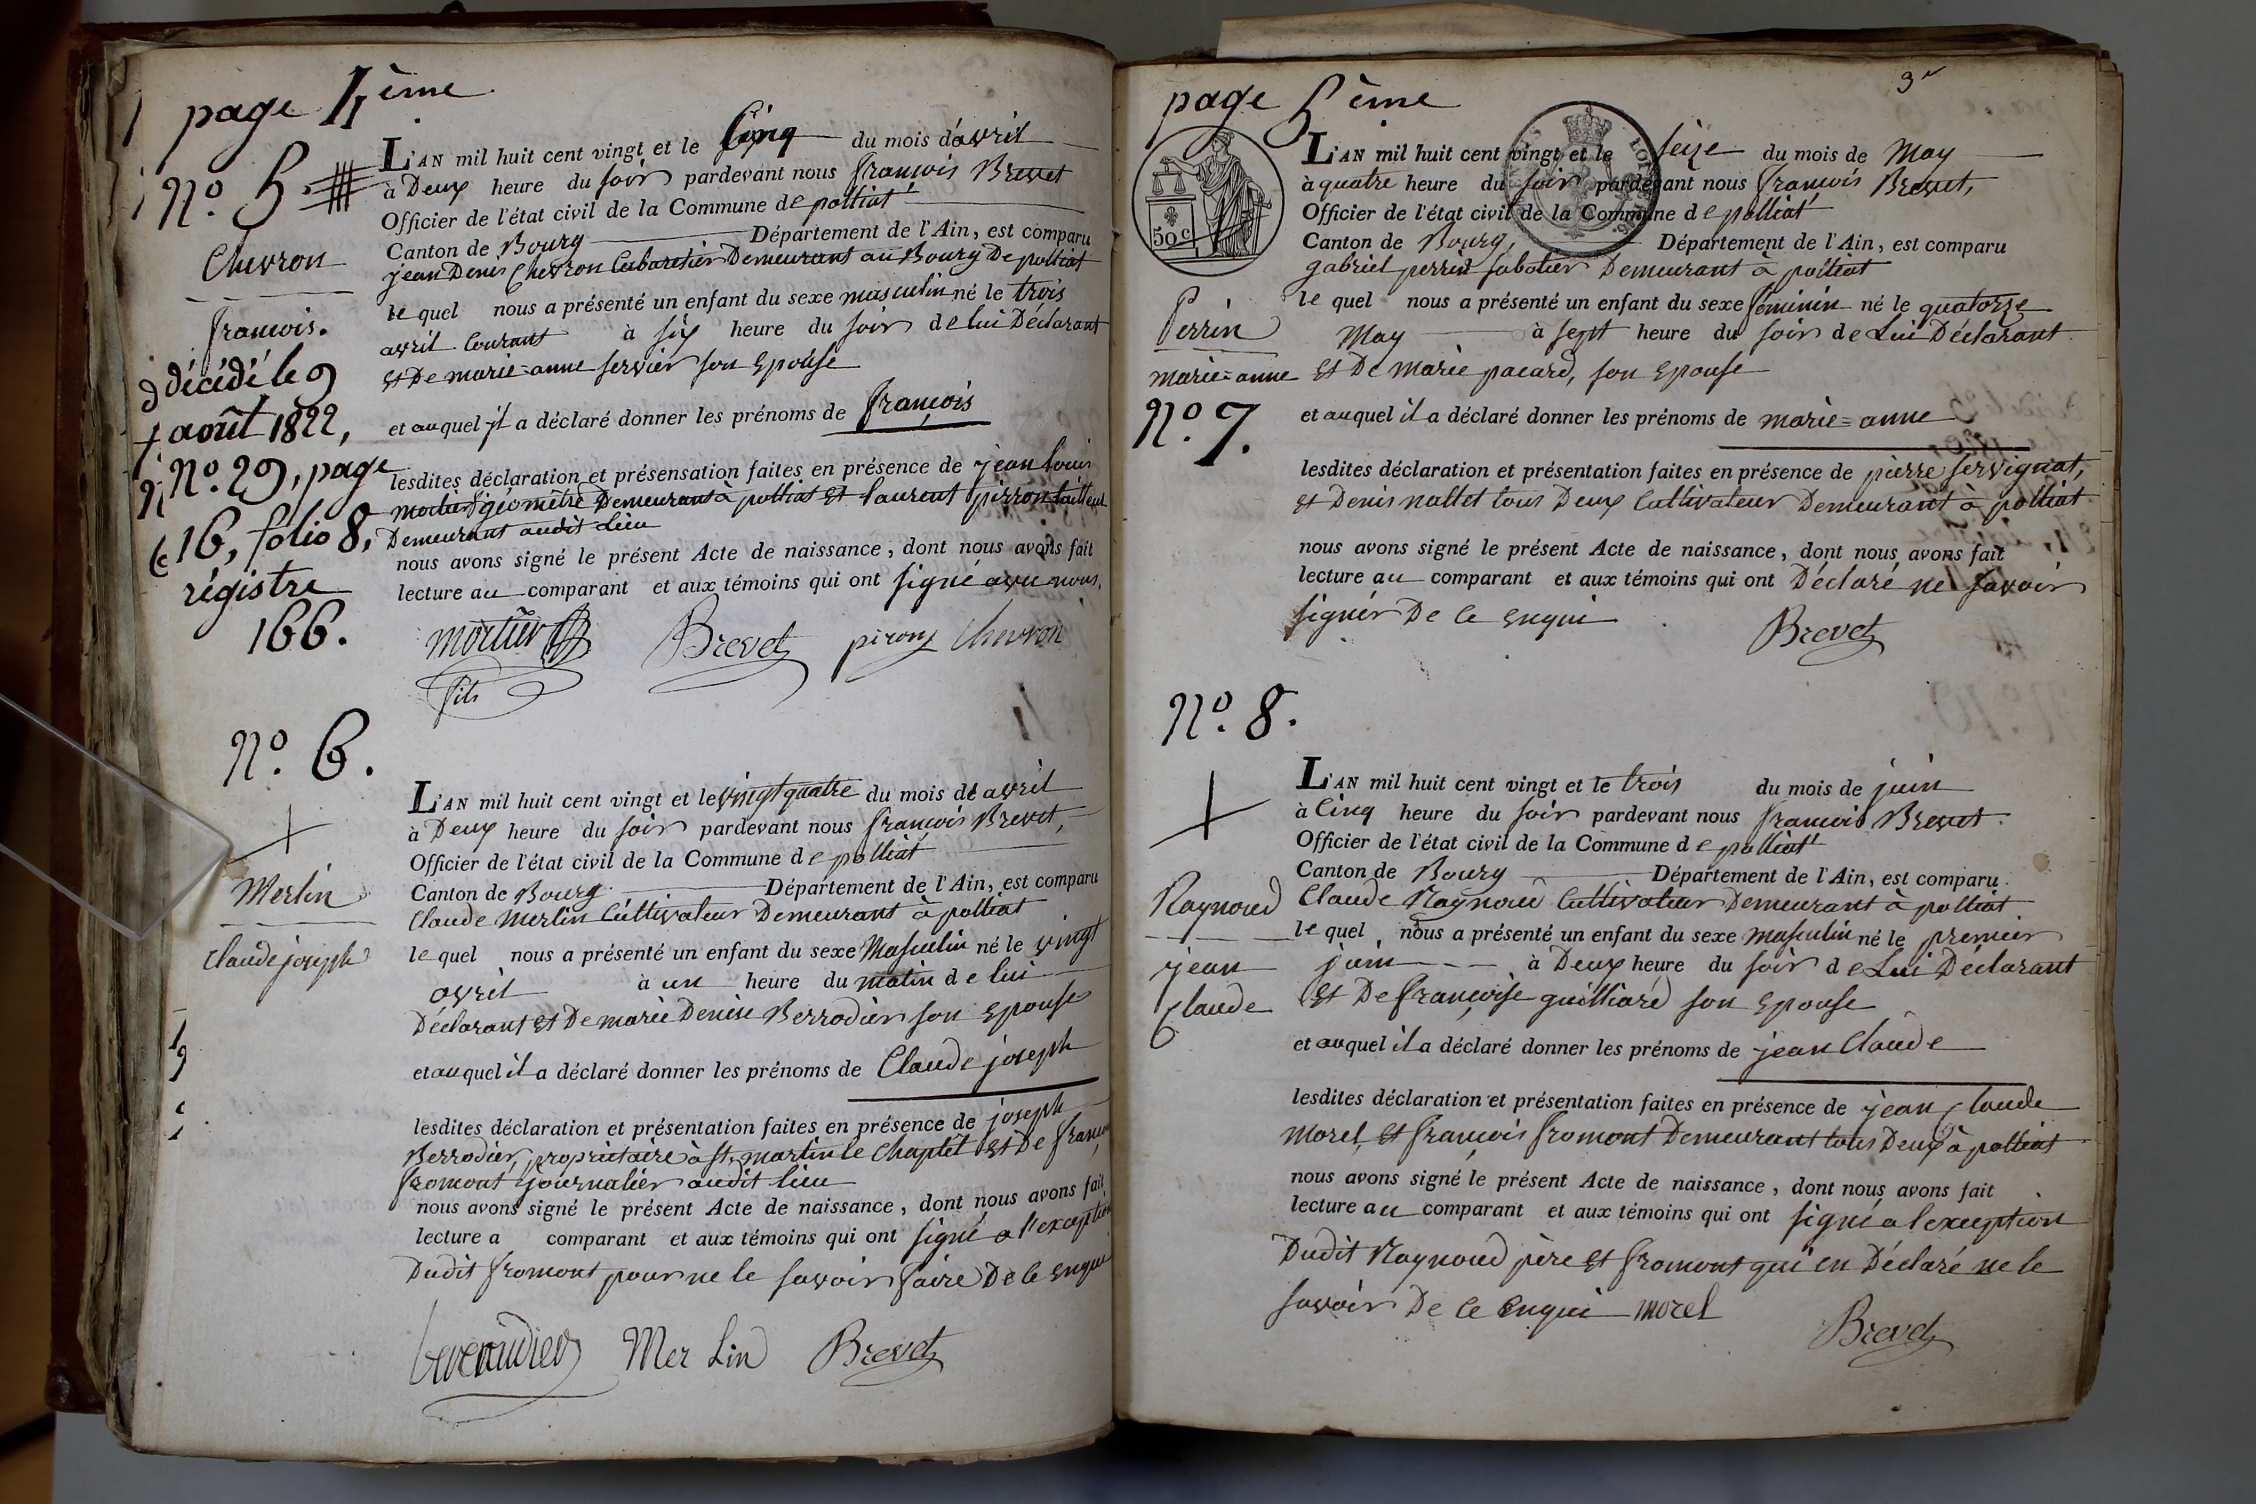 page 4ème
No. 5.
L'AN mil huit cent vingt et le Cinq du mois d'avril
à Deux heure du soir pardevant nous françois Brevet
Officier de l'état civil de la Commune de polliat
Canton de Bourg Département de l'Ain, est comparu
jean Denis Chevron Cabaretier Demeurant au Bourg De polliat
le quel nous a présenté un enfant du sexe masculin né le trois
avril Courant à six heure du soir de lui Déclarant
et De marie=anne servier son Epouse
et au quel il a déclaré donner les prénoms de françois
lesdites déclaration et présensation faites en présence de jean louis
mortier géomètre Demeurant à polliat et laurent pirron
Demeurant audit Lieu
nous avons signé le présent Acte de naissance, dont nous avons fait
lecture au comparant et aux témoins qui ont signé avec nous.
mortier Brevet piron Chevron
fils
Chevron
françois.
décédé le 9
août 1822,
No. 29, page
16, folio 8,
régistre
166.
No. 6.
Merlin
Claude joseph
L'AN mil huit cent vingt et le vingt quatre du mois de avril
à Deux heure du soir pardevant nous françois Brevet,
Officier de l'état civil de la Commune de polliat
Canton de Bourg Département de l'Ain, est comparu
Claude Merlin Cultivateur Demeurant à polliat
le quel nous a présenté un enfant du sexe Masculin né le vingt
avril à un heure du matin de lui
Déclarant et De marie Denise Berrodier son Epouse
et au quel il a déclaré donner les prénoms de Claude joseph
lesdites déclaration et présentation faites en présence de joseph
Berrodier, propriétaire à st. martin le Chaptel et De françois
fromont journalier audit lieu
nous avons signé le présent Acte de naissance, dont nous avons fait
lecture a comparant et aux témoins qui ont signé a l'exception
Dudit fromont pour ne le savoir faire De ce Enqui
Merlin Brevet
page 5ème
3
50 c
L'AN mil huit cent vingt et le seize du mois de May
à quatre heure du soir pardevant nous françois Brevet,
Officier de l'état civil de la Commune de polliat
Canton de Bourg, Département de l'Ain, est comparu
gabriel perrin sabotier Demeurant à polliat
le quel nous a présenté un enfant du sexe féminin né le quatorze
May à sept heure du soir de Lui Déclarant
et De Marie pacard, son Epouse
et au quel il a déclaré donner les prénoms de marie=anne
lesdites déclaration et présentation faites en présence de pierre servignat,
et Denis nallet tous Deux Cultivateur Demeurant à polliat
nous avons signé le présent Acte de naissance, dont nous avons fait
lecture au comparant et aux témoins qui ont Déclaré ne savoir
signer De ce enqui
Brevet
Perrin
marie=anne
No. 7.
No. 8.
Raynoud
jean
Claude
L'AN mil huit cent vingt et le trois du mois de juin
à Cinq heure du soir pardevant nous françois Brevet.
Officier de l'état civil de la Commune de polliat
Canton de Bourg Département de l'Ain, est comparu
Claude Raynoud Cultivateur Demeurant à polliat
le quel nous a présenté un enfant du sexe masculin né le premier
juin à Deux heure du soir de Lui Déclarant
et De françoise guilliard son Epouse
et au quel il a déclaré donner les prénoms de jean Claude
lesdites déclaration et présentation faites en présence de jean Claude
Morel, et françois fromont Demeurant tous Deux à polliat
nous avons signé le présent Acte de naissance, dont nous avons fait
lecture au comparant et aux témoins qui ont signé a l'exception
Dudit Raynoud père et fromont qui en Déclaré ne le
savoir De ce Enqui morel
Brevet